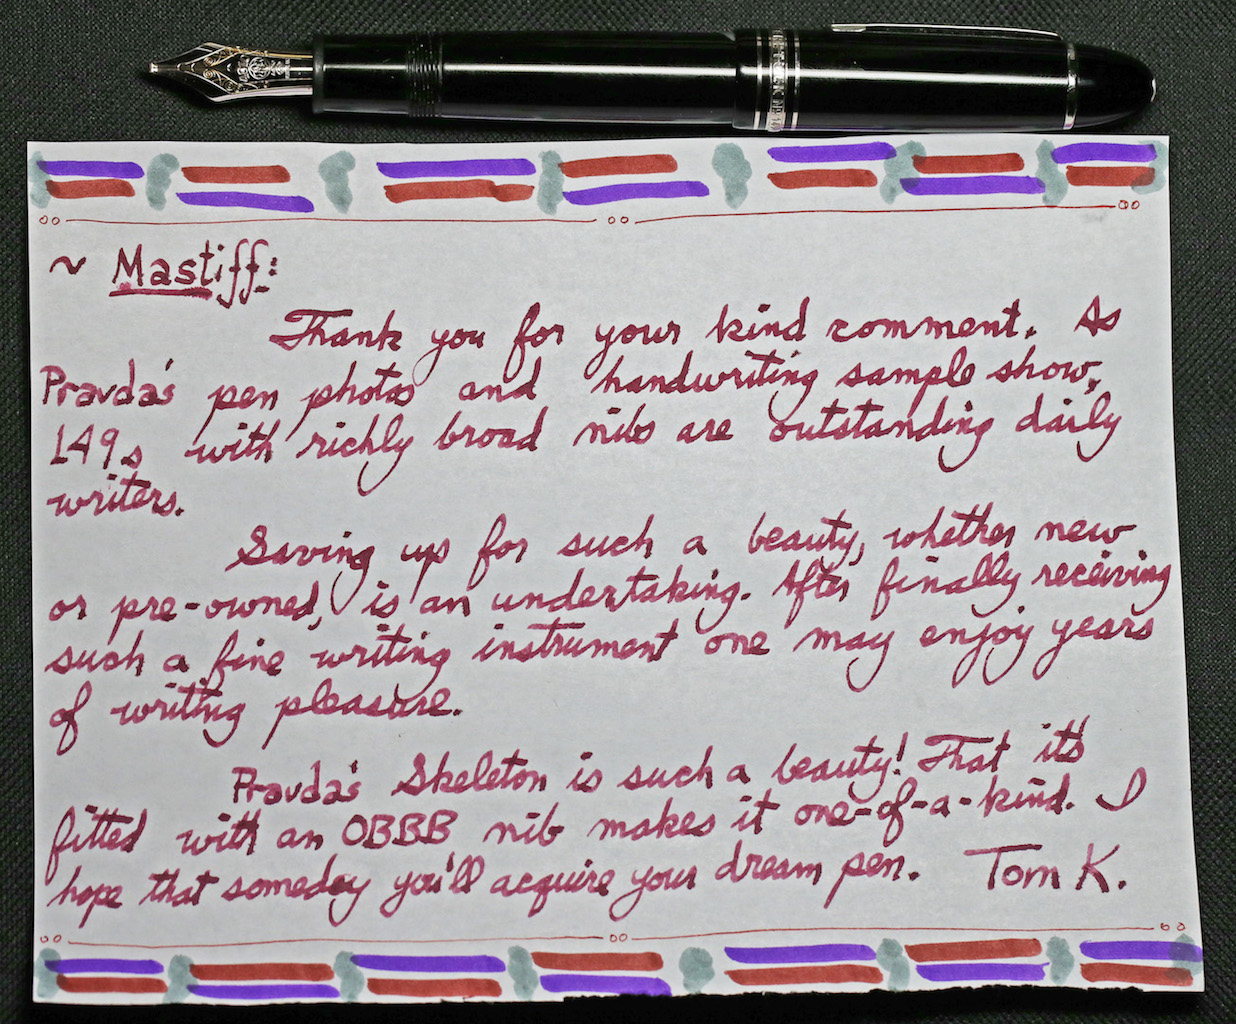 ~ Mastiff:
Thank you for your kind comment. As
Pravda's pen photos and handwriting sample show,
149s with richly broad nibs are outstanding daily
writers.
Saving up for such a beauty, whether new
or pre-owned, is an undertaking. After finally receiving
such a fine writing instrument one may enjoy years
of writing pleasure.
Pravda's Skeleton is such a beauty! That it's
fitted with an OBBB nib makes it one-of-a-kind. I
hope that someday you'll acquire your dream pen. Tom K.